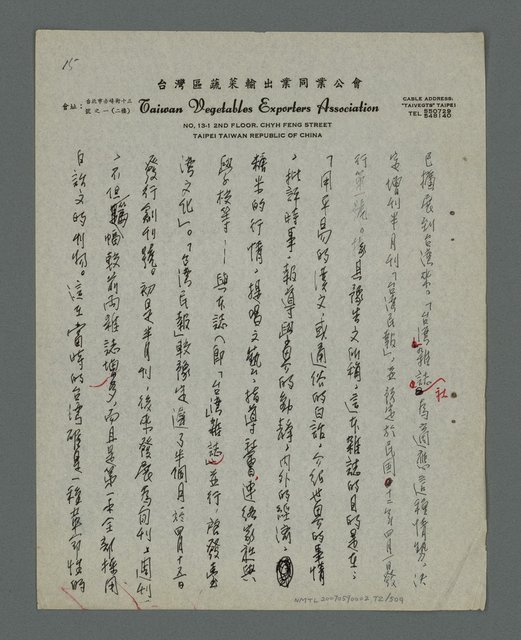 15
台灣區蔬菜輸出業同業公會
會址：台北市赤峰街十三號之一(二樓)
Taiwan Vegetables Exporters Association
NO, 13-1 2ND FLOOR. CHYH FENG STREET
TAIPEI TAIWAN REPUBLIC OF CHINA
CABLE ADDRESS:
"TAIVEGTB" TAIPEI
TEL 550726
548140
已擴展到台灣來。「台灣雜誌社」為適應這種情勢，決
定增刊半月刊「台灣民報」，並預定於民國十二年四月一日發
行第一號。據其豫告文所稱，這本雜誌的目的是在：
「用平易的漢文，或通俗的白話，介紹世界的事情
，批評時事，報導學界的動靜，內外的經濟，
糖米的行情，提唱文藝，指導社會，連絡家庭與
學校等——與本誌（即「台灣雜誌」）並行，啟發臺
灣文化」。「台灣民報」較豫定遲了半個月於四月十五日
發行創刊號。初是半月刊，後來發展為旬刊、週刊
，不但篇幅較前兩雜誌增多，而且是第一本全部採用
白話文的刊物。這在當時的台灣確是一種革命性的
NMTL20070590002_TZ/504